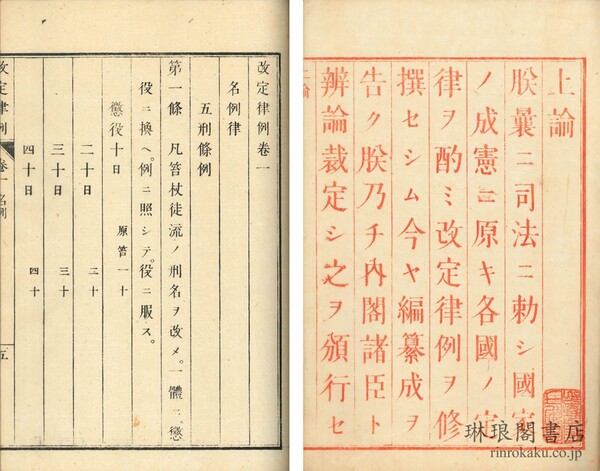 上諭
朕曩ニ司法ニ勅シ國家
ノ成憲ニ原キ各國ノ定
律ヲ酌ミ改定律例ヲ修
撰セシム今ヤ編纂成ヲ
告ク朕乃チ內閣諸臣ト
辨論裁定シ之ヲ頒行セ
上諭
改定律例卷一
名例律
五刑條例
第一條 凡笞杖徒流ノ刑名ヲ改メ。一體ニ懲
役ニ換ヘ。例ニ照シテ。役ニ服ス。
懲役十日 原笞一十
二十日 二十
三十日 三十
四十日 四十
改定律例 卷一 名例 五
琳琅閣書店
rinrokaku.co.jp